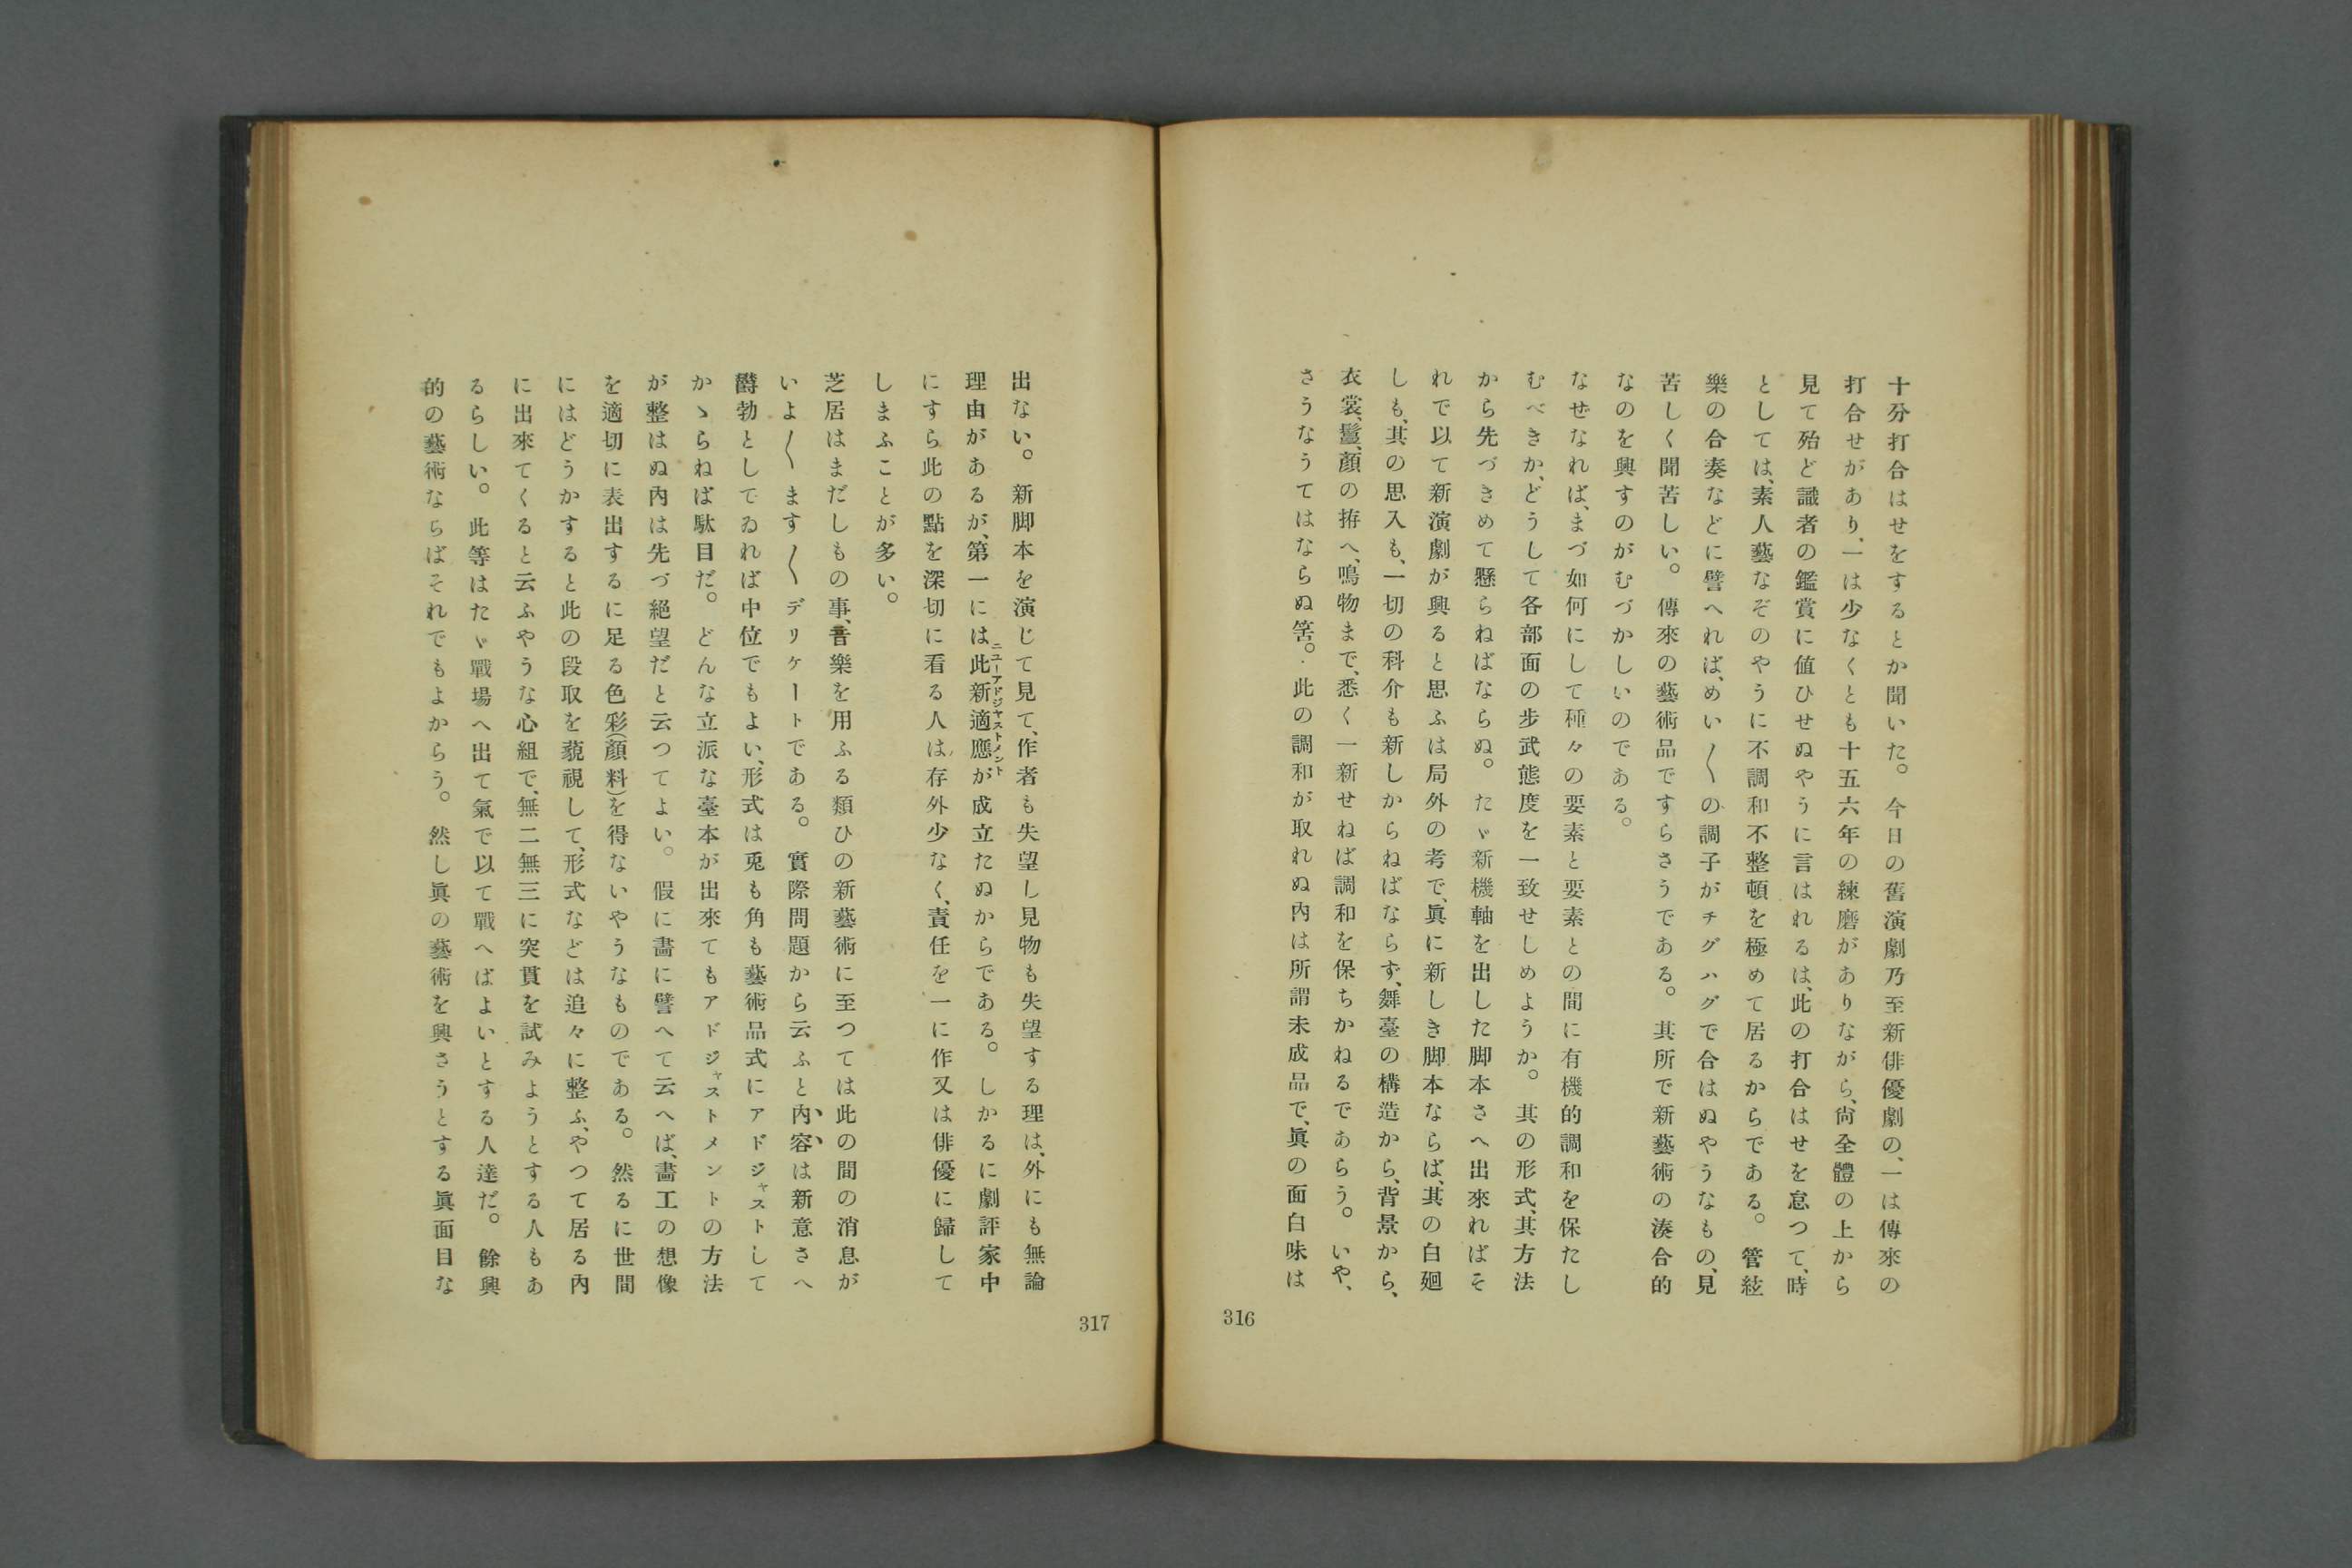 十分打合はせをするとか聞いた。今日の舊演劇乃至新俳優劇の、一は傳來の
打合せがあり、一は少なくとも十五六年の練磨がありながら、尙全體の上から
見て殆ど識者の鑑賞に値ひせぬやうに言はれるは、此の打合はせを怠つて、時
としては、素人藝なぞのやうに不調和不整頓を極めて居るからである。管絃
樂の合奏などに譬へれば、めい〱の調子がチグハグで合はぬやうなもの、見
苦しく聞苦しい。傳來の藝術品ですらさうである。其所で新藝術の湊合的
なのを興すのがむづかしいのである。
なぜなれば、まづ如何にして種々の要素と要素との間に有機的調和を保たし
むべきか、どうして各部面の步武態度を一致せしめようか。其の形式、其方法
から先づきめて懸らねばならぬ。たゞ新機軸を出した脚本さへ出來ればそ
れで以て新演劇が興ると思ふは局外の考で、眞に新しき脚本ならば、其の白廻
しも、其の思入も、一切の科介も新しからねばならず、舞臺の構造から、背景から、
衣裳、鬘、顏の拵へ、鳴物まで、悉く一新せねば調和を保ちかねるであらう。いや、
さうなうてはならぬ筈。此の調和が取れぬ內は所謂未成品で、眞の面白味は
316
出ない。新脚本を演じて見て、作者も失望し見物も失望する理は、外にも無論
理由があるが、第一には此新適應ニューアドジャストメントが成立たぬからである。しかるに劇評家中
にすら此の點を深切に看る人は存外少なく、責任を一に作又は俳優に歸して
しまふことが多い。
芝居はまだしもの事、音樂を用ふる類ひの新藝術に至つては此の間の消息が
いよ〱ます〱デリケートである。實際問題から云ふと內容は新意さへ
欝勃としてゐれば中位でもよい、形式は兎も角も藝術品式にアドジャストして
かゝらねば駄目だ。どんな立派な臺本が出來てもアドジャストメントの方法
が整はぬ內は先づ絕望だと云つてよい。假に畵に譬へて云へば、畵工の想像
を適切に表出するに足る色彩(顏料)を得ないやうなものである。然るに世間
にはどうかすると此の段取を藐視して、形式などは追々に整ふ、やつて居る內
に出來てくると云ふやうな心組で、無二無三に突貫を試みようとする人もあ
るらしい。此等はたゞ戰場へ出て氣で以て戰へばよいとする人達だ。餘興
的の藝術ならばそれでもよからう。然し眞の藝術を興さうとする眞面目な
317